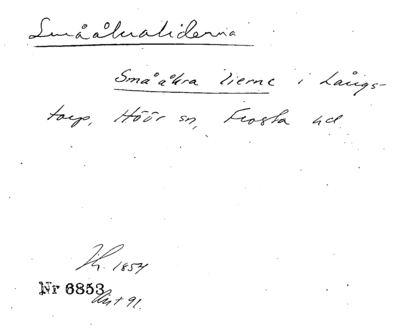 Småäkraliderna
Småäkra lierne i Långs-
torp, Höör sn, Frosta hd
1854
Nr 6853
Ant 91.